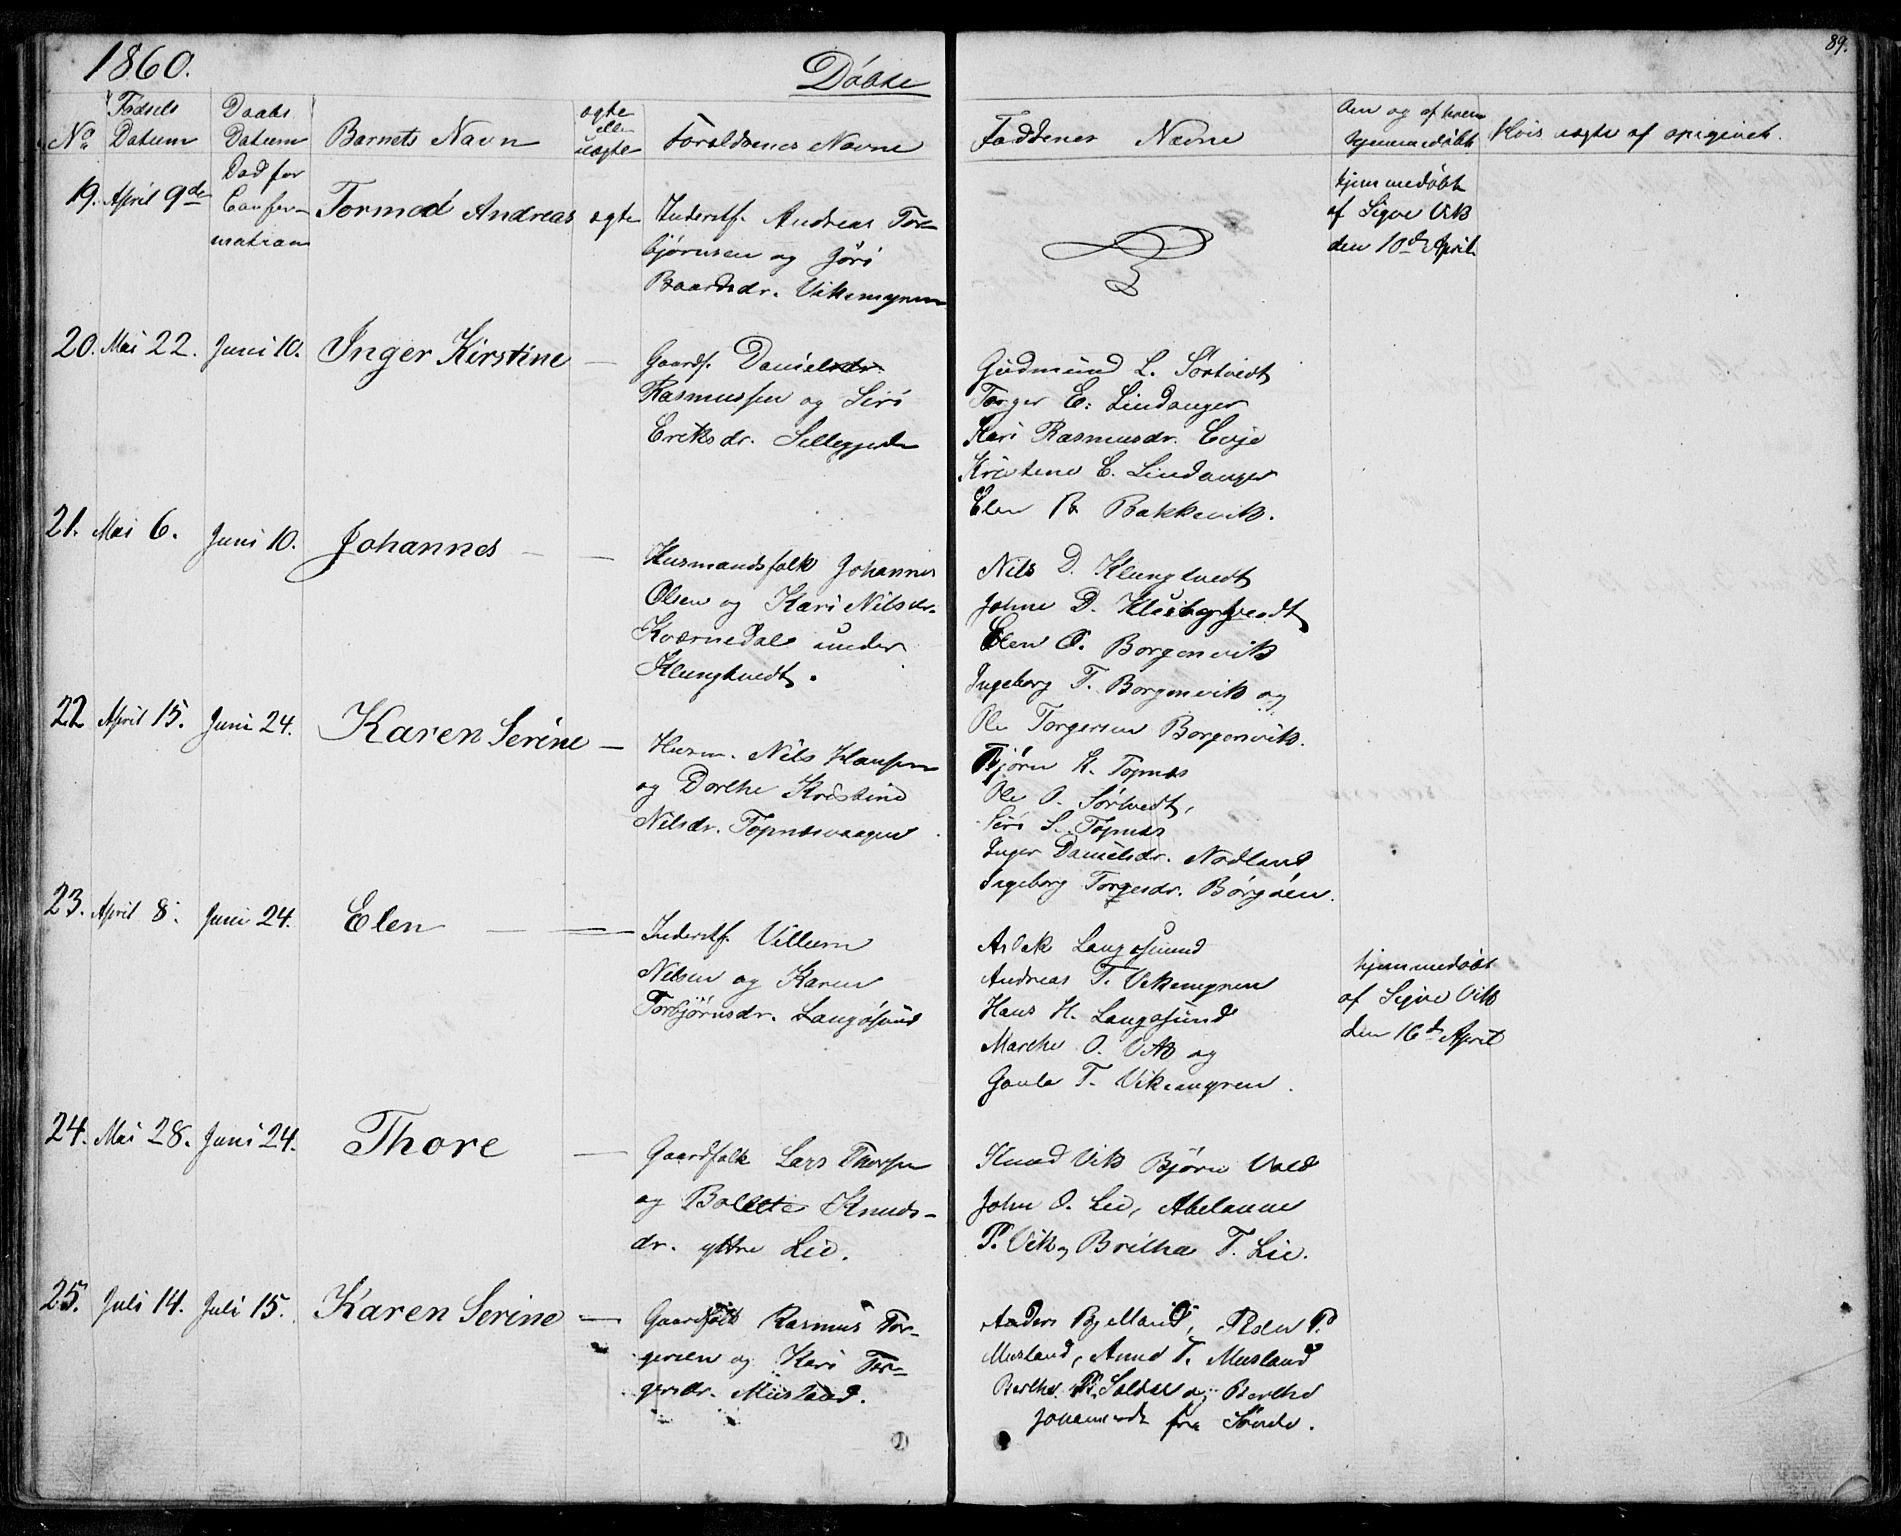 1860.
Døbte
89.
No
Fødsels Datum
Daabs Datum
Barnets Navn
ægte eller uægte
Forældrenes Navne
Faddernes Navne
Om og af hvem hjemmedøbt
Hvis uægte af opgivet.
19. April 9de
Død før
Confer-
mation
Tormod Andreas
ægte
Inderstf. Andreas Tor-
bjørnsen og Jøri
Baardsdr. Vikemyren
hjemmedøbt
af Sigve Vik
den 10de April
20. Mai 22. Juni 10. Inger Kirstine —
Gaardf. Daniel
Rasmussen og Siri
Eriksdr.
Gudmund L. Sørtvedt
Torger E. Lindanger
Kari Rasmusdr. Evje
Kristine E. Lindanger
Elen B. Bakkevik.
21. Mai 6. Juni 10. Johannes — —
Husmandsfolk Johannes
Olsen og Kari Nilsdr.
Kværnedal under
Klungtvedt.
Nils D. Klungtvedt
Johne D. Klungtvedt
Elen O. Borgenvik
Ingeborg T. Borgenvik og
Ole Torgersen Borgenvik.
22 April 15. Juni 24. Karen Serine —
Husm. Nils Hansen
og Dorthe Kristine
Nilsdr. Topnæsvaagen
Bjørn K. Topnæs
Ole O. Sørtvedt,
Siri S. Topnæs
Inger Danielsdr. Nodland
Ingeborg Torgersdr. Børgøen.
23. April 8. Juni 24. Elen — —
Inderstf. Villum
Nilsen og Karen
Torbjørnsdr. Langøsund
Aslak Langøsund
Andreas T. Vikemyren
Hans H. Langøsund
Marthe O. Vik og
Gonla T. Vikemyren.
hjemmedøbt
af Sigve Vik
den 16de April
24. Mai 28. Juni 24. Thore —
Gaardfolk Lars Thorsen
og Bolette Knuds-
dr. yttre Lie.
Knud Vik Bjørn Vold
John O. Lie, Abelanne
P. Vik og Britha T. Lie.
25. Juli 14. Juli 15. Karen Serine —
Gaardfolk Rasmus Tor-
gersen og Kari Tor-
gersdr. Musland.
Anders Bjelland, Peder P.
Musland, Anne T. Musland
Berthe og Berthe
fra Søvde.